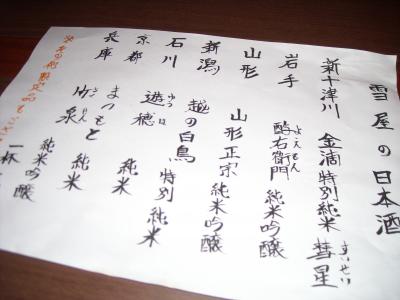 雪屋の日本酒
新十津川 金滴 特別純米 彗星
すいせい
岩手 酉右衛門 純米吟醸
よえもん
山形 山形正宗 純米吟醸
新潟 越の白鳥 特別純米
石川 遊穂 純米
ゆうほ
京都 まつもと 純米
兵庫 竹泉 純米吟醸
一杯